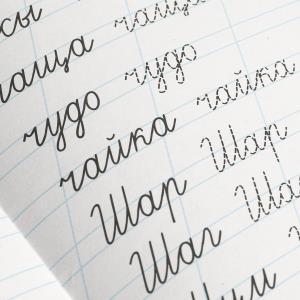 сы чаща
чаща чудо
чудо чайка
чайка Шар
Шар Шаг
Шаг